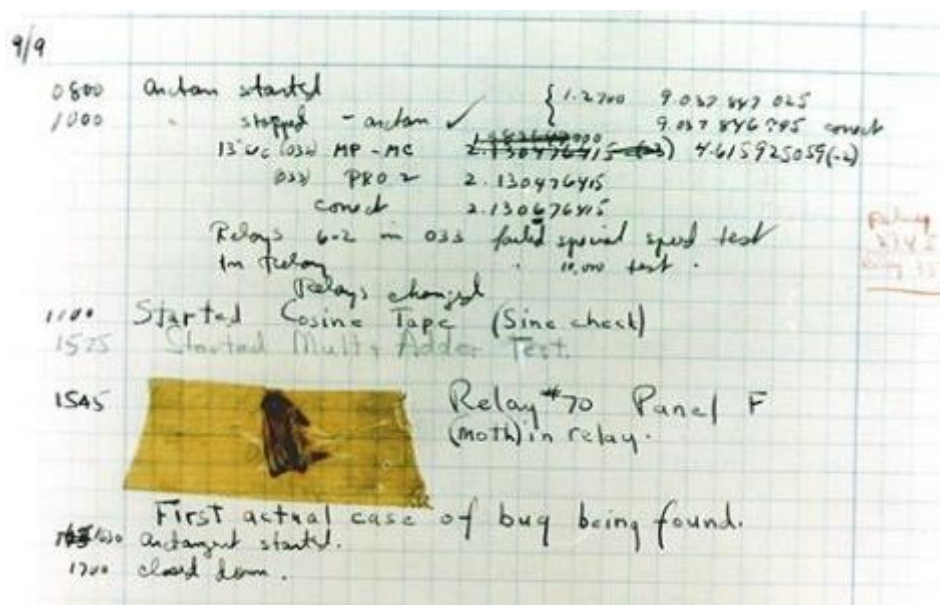 9/9
0800 Antan started { 1.2700 9.037 847 025
1000 " stopped - antan ✓ 9.037 846 995 conect
13"uc (032) MP - MC 2.130476415 (-3) 4.615925059(-2)
(033) PRO 2 2.130476415
conect 2.130676415
Relays 6-2 in 033 failed special speed test
In Relay " 10,000 test .
Relays changed
1100 Started Cosine Tape (Sine check)
1525 Started Mult+ Adder Test.
1545 Relay #70 Panel F
(Moth) in relay.
First actual case of bug being found.
1630 Antangent started.
1700 closed down.
Relay
2145
Relay 33